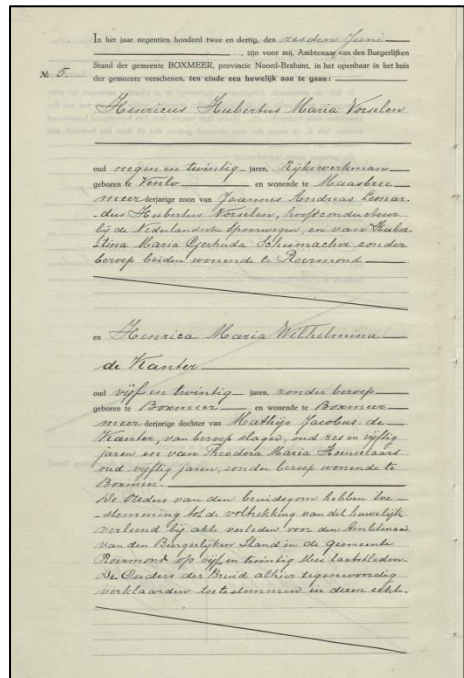 In het jaar negentien honderd twee en dertig, den zesden Juni
, zijn voor mij, Ambtenaar van den Burgerlijken
Stand der gemeente BOXMEER, provincie Noord-Brabant, in het openbaar in het huis
№ 5. der gemeente verschenen, ten einde een huwelijk aan te gaan:
Henricus Hubertus Maria Vorselen
oud negen en twintig jaren, Rijkswerkman
geboren te Venlo en wonende te Maasbree
meerderjarige zoon van Joannes Andreas Leonar-
dus Hubertus Vorselen, hoofdconducteur
bij de Nederlandsche Spoorwegen, en van Huber-
tina Maria Gertruda Schumacher zonder
beroep beiden wonende te Roermond
en Henrica Maria Wilhelmina
de Kanter
oud vijf en twintig jaren, zonder beroep
geboren te Boxmeer en wonende te Boxmeer
meerderjarige dochter van Mathijs Jacobus de
Kanter, van beroep slager, oud zes en vijftig
jaren en van Theodora Maria Henselaars
oud vijftig jaren, zonder beroep wonende te
Boxmeer.
De Ouders van den bruidegom hebben toe-
stemming tot de voltrekking van dit huwelijk
verleend bij akte verleden voor den Ambtenaar
van den Burgerlijken Stand in de gemeente
Roermond op vijf en twintig Mei laatstleden.
De Ouders der Bruid alhier tegenwoordig
verklaarden toe te stemmen in deren echt.